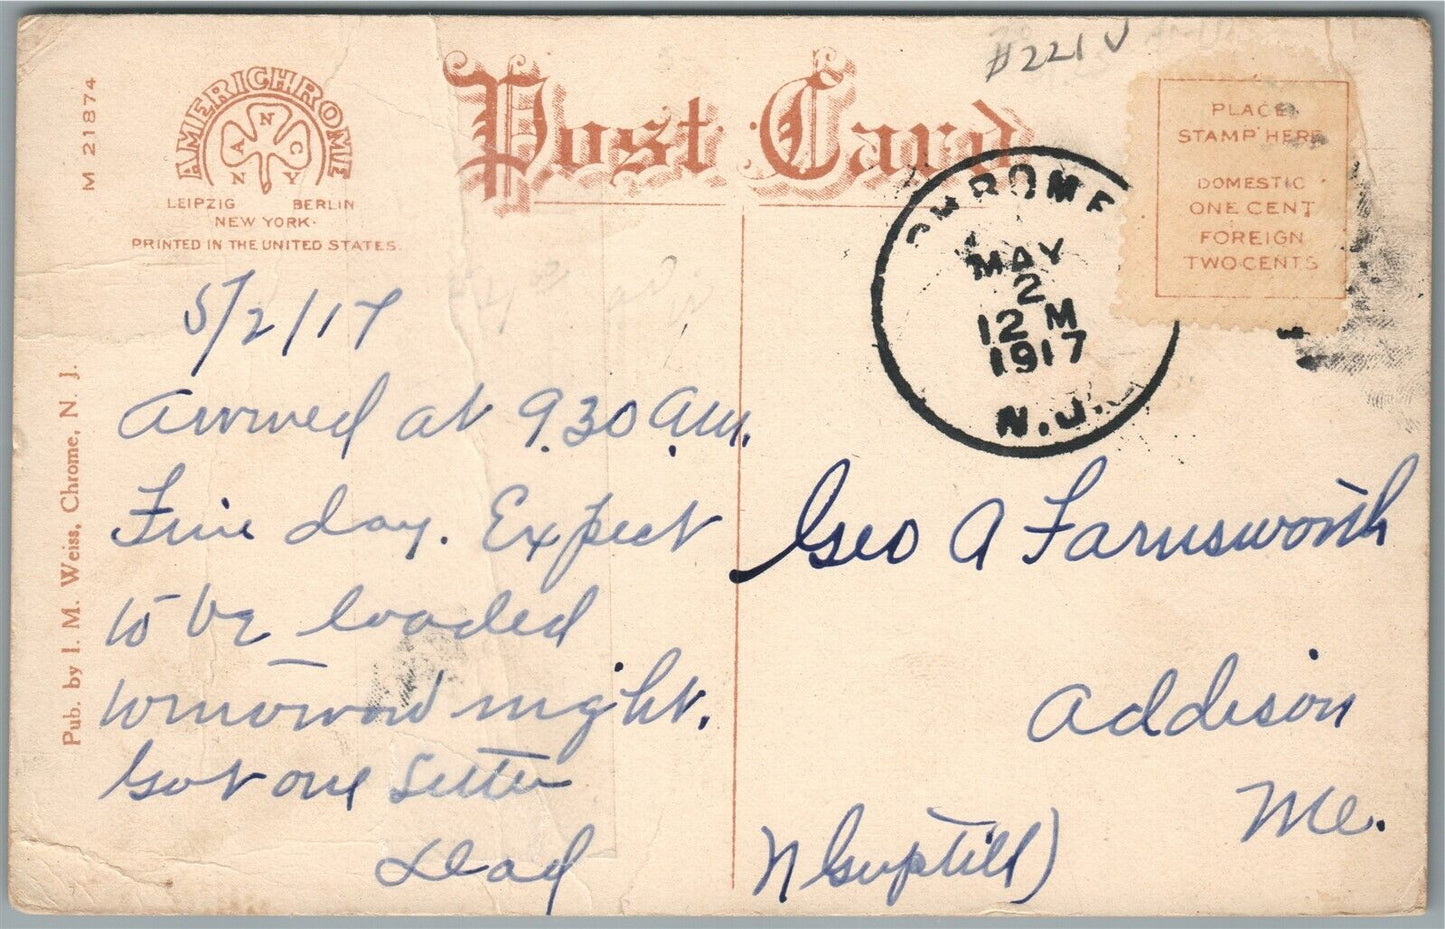 #221
Post Card
AMERICHROME
A N C
N Y
LEIPZIG BERLIN
NEW YORK.
PRINTED IN THE UNITED STATES.
M 21874
Pub. by I. M. Weiss, Chrome, N. J.
PLACE
STAMP HERE
DOMESTIC
ONE CENT
FOREIGN
TWO CENTS
CHROME
MAY
2
12 M
1917
N.J.
5/2/17
Arrived at 9.30 a.m.
Fine day. Expect
to be loaded
tomorrow night.
Got one letter
Dad
Geo A Farnsworth
Addison
Me.
N Guptill)